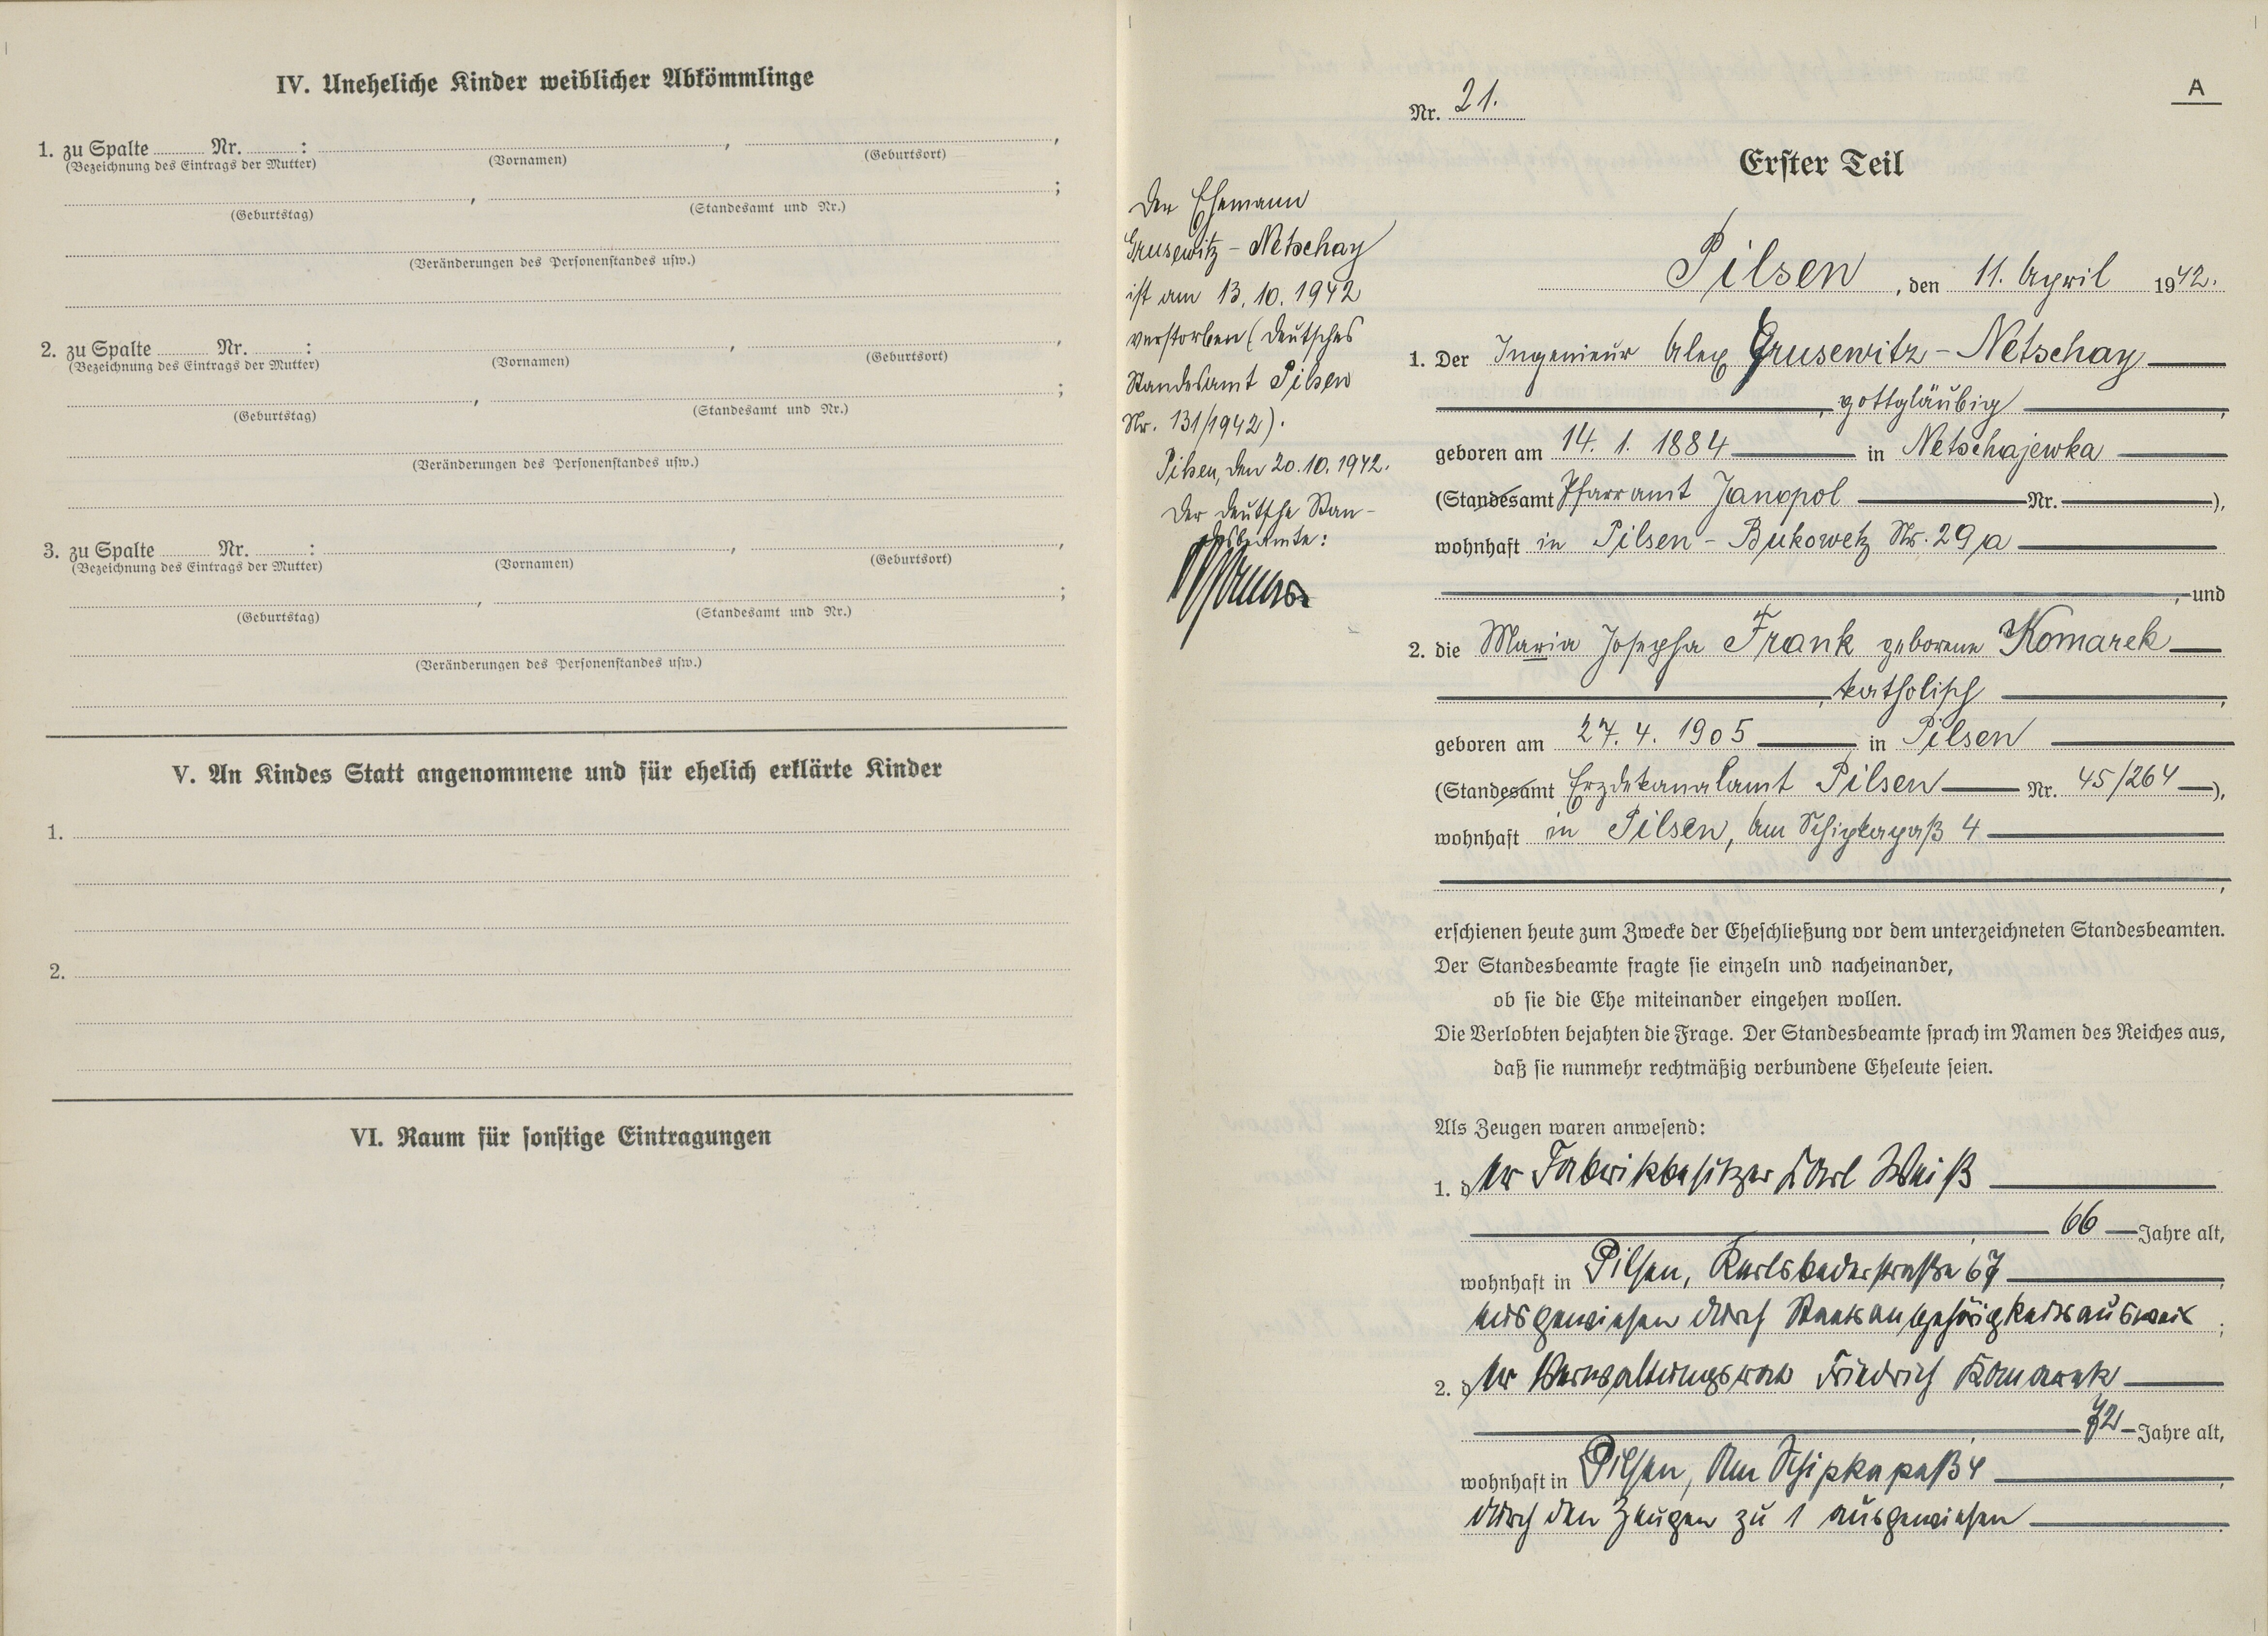 IV. Uneheliche Kinder weiblicher Abkömmlinge
1. zu Spalte ........ Nr. ........ : ........ , ........ ,
(Bezeichnung des Eintrags der Mutter) (Vornamen) (Geburtsort)
........ , ........ ;
(Geburtstag) (Standesamt und Nr.)
(Veränderungen des Personenstandes usw.)
2. zu Spalte ........ Nr. ........ : ........ , ........ ,
(Bezeichnung des Eintrags der Mutter) (Vornamen) (Geburtsort)
........ , ........ ;
(Geburtstag) (Standesamt und Nr.)
(Veränderungen des Personenstandes usw.)
3. zu Spalte ........ Nr. ........ : ........ , ........ ,
(Bezeichnung des Eintrags der Mutter) (Vornamen) (Geburtsort)
........ , ........ ;
(Geburtstag) (Standesamt und Nr.)
(Veränderungen des Personenstandes usw.)
V. An Kindes Statt angenommene und für ehelich erklärte Kinder
1.
2.
VI. Raum für sonstige Eintragungen
A
Nr. 21.
Erster Teil
Der Ehemann
Grusewitz-Netschay
ist am 13.10.1942
verstorben (Deutsches
Standesamt Pilsen
Nr. 131/1942).
Pilsen, den 20.10.1942.
Der deutsche Stan-
desbeamte:
Pilsen, den 11. April 1942.
1. Der Ingenieur Alex Grusewitz-Netschay
, gottgläubig ,
geboren am 14. 1. 1884 in Netschajewka
(Standesamt Pfarramt Janopol Nr. ),
wohnhaft in Pilsen-Bukowetz Nr. 29a
, und
2. die Maria Josepha Frank geborene Komarek
, katholisch ,
geboren am 27. 4. 1905 in Pilsen
(Standesamt Erzdekanalamt Pilsen Nr. 45/264 ),
wohnhaft in Pilsen, Am Schipkapaß 4
,
erschienen heute zum Zwecke der Eheschließung vor dem unterzeichneten Standesbeamten.
Der Standesbeamte fragte sie einzeln und nacheinander,
ob sie die Ehe miteinander eingehen wollen.
Die Verlobten bejahten die Frage. Der Standesbeamte sprach im Namen des Reiches aus,
daß sie nunmehr rechtmäßig verbundene Eheleute seien.
Als Zeugen waren anwesend:
1. der Fabrikbesitzer Karl Weiß
, 66 Jahre alt,
wohnhaft in Pilsen, Karlsbaderstraße 67 ,
ausgewiesen durch Staatsangehörigkeitsausweis ;
2. der Verwaltungsrat Friedrich Komarek
, 72 Jahre alt,
wohnhaft in Pilsen, Am Schipkapaß 4 ,
durch den Zeugen zu 1 ausgewiesen .